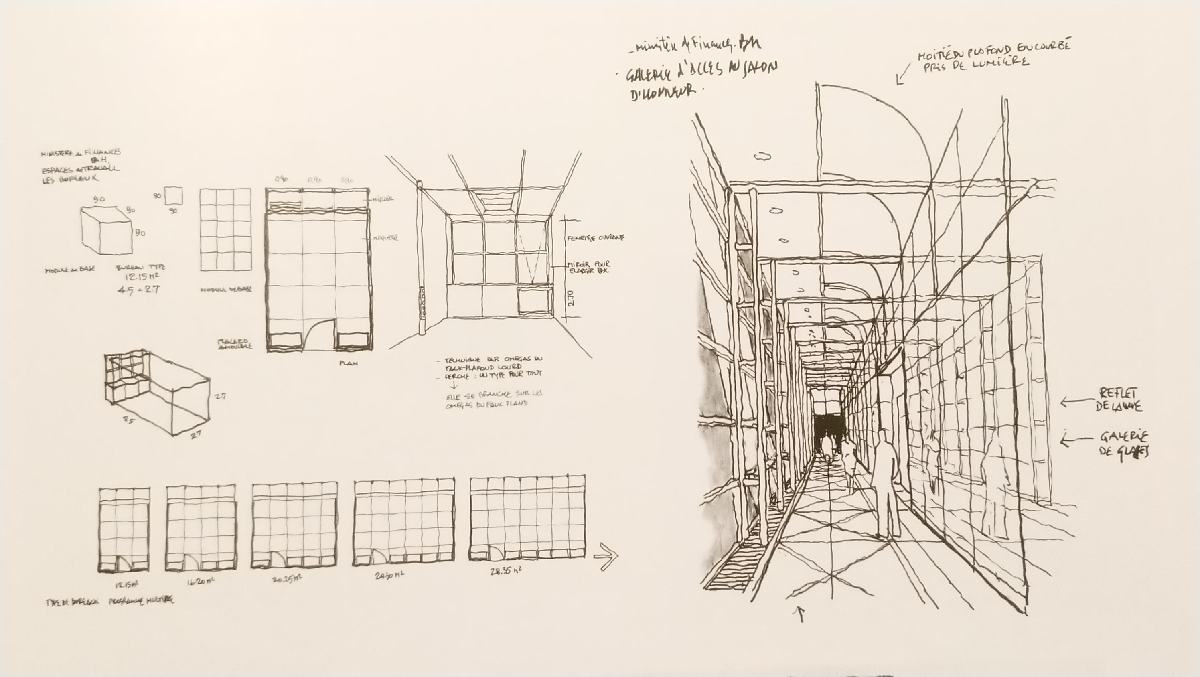 MINISTERE de FINANCES
B.H.
ESPACES de TRAVAIL
LES BUREAUX
90
90
90
MODULE de BASE
90
90
BUREAU TYPE
12.15 M²
4.5 x 2.7
MODULE DE BASE
0.90 0.90 0.90
PLAN
FENETRE OUVRANTE
MIROIR POUR
ELARGIR
2.70
- TECHNIQUE SUR OMEGAS DU
FAUX-PLAFOND LOURD
UN TYPE POUR TOUT
ELLE SE BRANCHE SUR LES
OMEGAS DU FAUX PLAFOND
4.5
2.7
2.7
12.15 M²
16.20 M²
20.25 M²
24.30 M²
28.35 M²
TYPE DE BUREAUX PROGRAMME MINISTERE
- Ministère de Finances. B.H
GALERIE D'ACCES AU SALON
D'HONNEUR.
MOITIE DU PLAFOND EN COURBE
PRIS DE LUMIERE
REFLET
DE LAME
GALERIE
DE GLACES